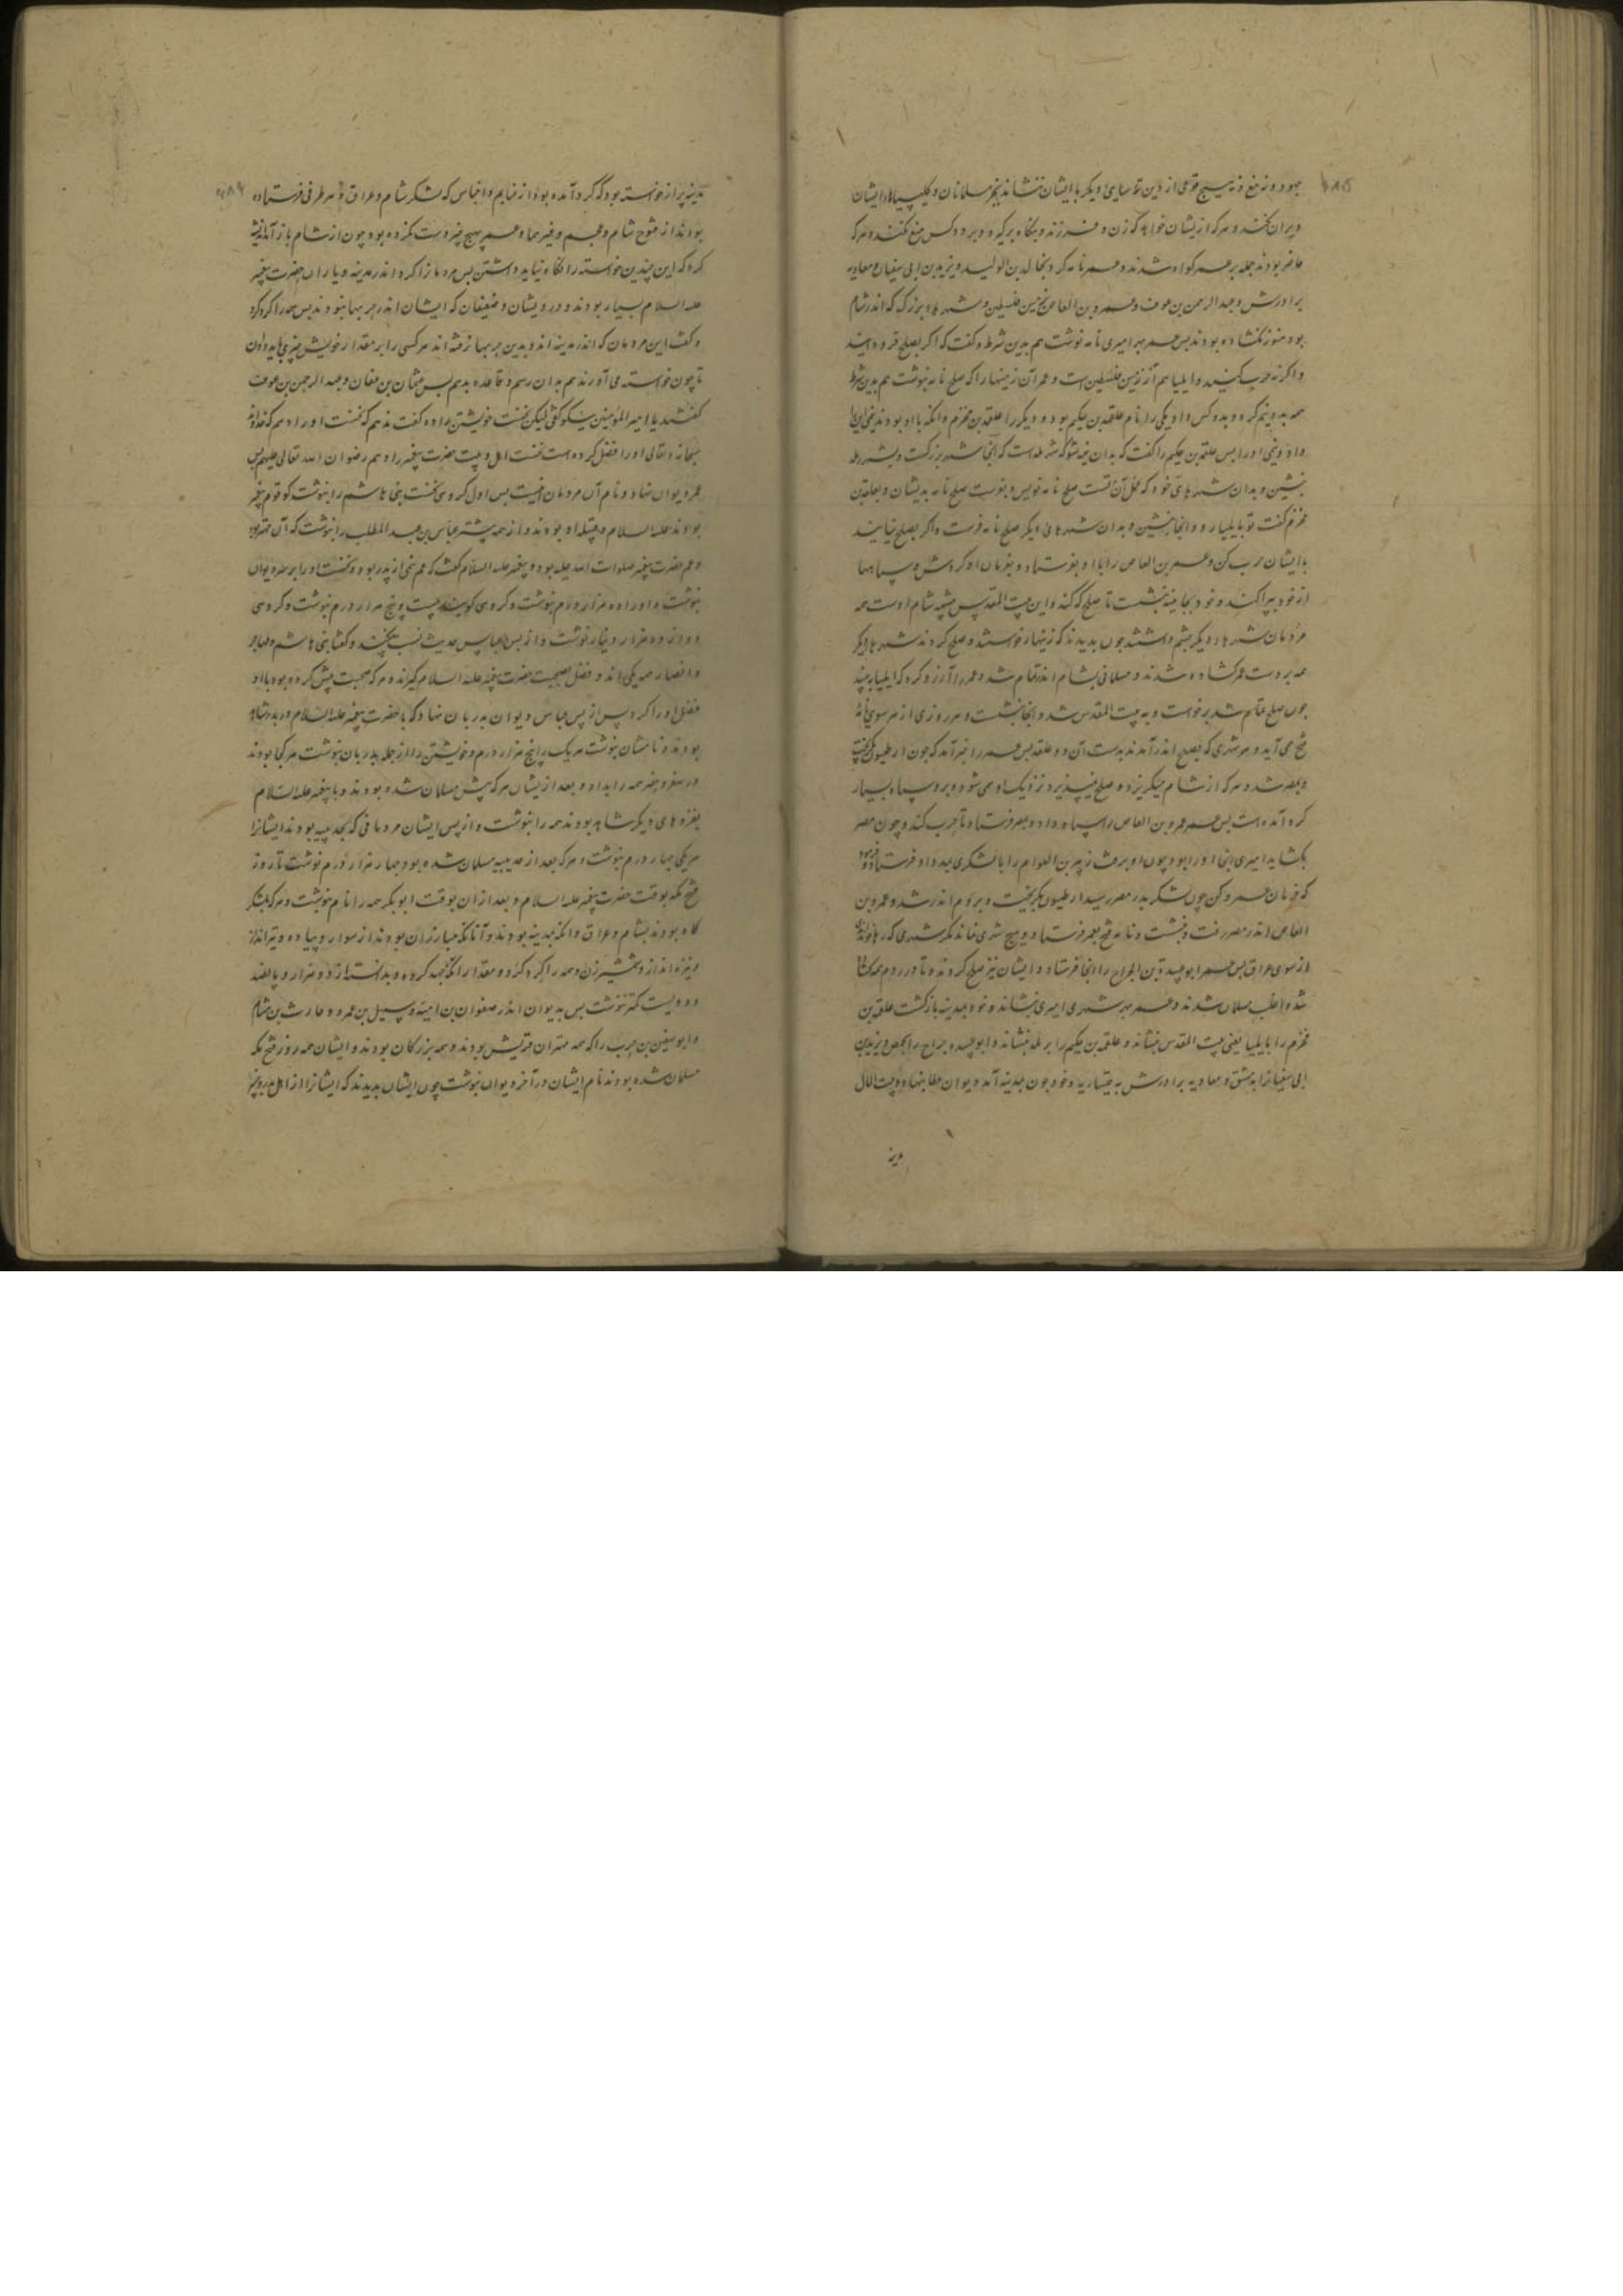 یهود و نه مغ و نه هیچ قومی از دین ترسایی دیگر با ایشان ننشاند بجز مسلمانان و کلیسیاهاء ایشان
ویران نکنند و هرکه از یشان خواهد که زن و فرزند و بنگاه برگیرد و برود کس منع نکنند و هرکه
حاضر بودند جمله بر عمر گواه شدند و عمر نامه کرد بخالد بن الولید و یزید بن ابی سفیان و معاویه
برادرش و عبد الرحمن بن عوف و عمرو بن العاص زمین فلسطین و شهرهاء بزرگ که اندر شام
بود هنوز نگشاده بودند پس عمر بهر امیری نامه نوشت هم بدین شرط و گفت که اگر بصلح فرود آیند
و اگر نه حرب کنید و ایلیا هم از زمین فلسطین است و عمر آن زمینها را که صلح نامه بنوشت هم بدین شرط
همه بدو نیم کرد و بدو کس داد یکی را نام علقمه بن حکیم بود و دیگر را علقمه بن مخرم و آنکه با او بودند نیمی این را
داد و نیمی او را پس علقمه بن حکیم را گفت که بدان نیمه شو که شهر رمله است که آنجا شهر بزرگست و بشهر رمله
بنشین و بدان شهرهای خود که محل آن تست صلح نامه نویس و بفرست صلح نامه بدیشان و بعلقمه بن
مخرم گفت تو بایلیا رو و آنجا بنشین و بدان شهرهای دیگر صلح نامه فرست و اگر بصلح نیایند
با ایشان حرب کن و عمر بن العاص را با او بفرستاد و بفرمان او کردش و سپاهها
از خود بپراکند و خود بجابیه بنشست تا صلح که کند و این بیت المقدس بیشه شام اوست همه
مردمان شهرهاء دیگر چشم داشتند چون بدیدند که زینهار خواستند و صلح کردند شهرهاء دیگر
همه بر دست عمر گشاده شدند و مسلمانی بشام اندر تمام شد و عمر را آرزو کرد که ایلیا ببیند
چون صلح تمام شد برخواست و به بیت المقدس شد و آنجا بنشست و هر روزی از هر سوی نامه
فتح می آید و هر شهری که بصلح اندر آمدند بدست آن دو علقمه پس عمر را خبر آمد که چون ارطیون بگریخت
و بمصر شد و هرکه از شام میگریزد و صلح نمیپذیرد نزدیک او می شود و برو سپاه بسیار
گرد آمده است پس عمر عمرو بن العاص را سپاه داد و بمصر فرستاد تا حرب کند و چون مصر
بگشاید امیری آنجا او را بود چون او برفت زبیر بن العوام را با لشکری بمدد او فرستاد و فرمود
که فرمان عمرو کن چون لشکر بدر مصر رسید ارطیون بگریخت و بروم اندر شد و عمرو بن
العاص اندر مصر رفت و بنشست و نامه فتح بعمر فرستاد و هیچ شهری نماند مگر شهری که رها خوانند
از سوی عراق پس عمر ابو عبیدة بن الجراح را آنجا فرستاد و ایشان نیز صلح کردند و تا در روم همه گشاده
شد و اغلب مسلمان شدند و عمر بهر شهری امیری بنشاند و خود بمدینه بازگشت علقمه بن
مخرم را بایلیا یعنی بیت المقدس بنشاند و علقمه بن حکیم را برمله بنشاند و ابو عبیده جراح را بحمص و یزید بن
ابی سفیان را بدمشق و معاویه برادرش به قیساریه و خود چون بمدینه آمد دیوان عطا بنهاد و بیت المال
مدینه
مدینه پر از خواسته بود که گرد آمده بود از غنایم و اخماس که لشکر شام و عراق و هر طرفی فرستاده
بودند از فتوح شام و عجم و غیر هما و عمر بهیچ چیز دست نکرده بود چون از شام باز آمد اندیشه
کرد که این چندین خواسته را نگاه نباید داشتن پس مردمان را گرد کرد اندر مدینه و یاران حضرت پیغمبر
علیه السلام بسیار بودند و درویشان و ضعیفان که ایشان اندر حربها نبودند پس همه را گرد کرد
و گفت این مردمان که اندر مدینه اند و بدین حربها رفته اند هر کسی را بر مقدار خویش چیزی باید دادن
تا چون خواسته می آورند هم بدان رسم و قاعده بدهم پس عثمان بن عفان و عبد الرحمن بن عوف
گفتند یا امیر المؤمنین نیکو گفتی لیکن نخست خویشتن را ده گفت ندهم که نخست او را دهم که خدای
سبحانه و تعالی او را فضل کرده است نخست اهل بیت حضرت پیغمبر را دهم رضوان الله تعالی علیهم پس
عمر دیوان نهاد و نام آن مردمان بنوشت پس اول گروهی نخست بنی هاشم را بنوشت که قوم پیغمبر
بودند علیه السلام و قبیله او بودند و از همه پیشتر عباس بن عبد المطلب را بنوشت که آن مهتر بود
و عم حضرت پیغمبر صلوات الله علیه بود و پیغمبر علیه السلام گفت که عم نیمی از پدر بود و نخست او را بر سر دیوان
بنوشت و او را ده هزار درم بنوشت و گروهی گویند بیست و پنج هزار درم بنوشت و گروهی
دوازده هزار دینار نوشت و از پس عباس حدیث نسب بیفکند و گفتا بنی هاشم و مهاجر
و انصار همه یکی اند و فضل بصحبت حضرت پیغمبر علیه السلام گیرند هرکه صحبت پیش کرده بود با او
فضل او را کرد پس از پس عباس دیوان بدریان نهاد که با حضرت پیغمبر علیه السلام در بدر شاهد
بودند و نامشان بنوشت هر یک را پنج هزار درم و خویشتن را از جمله بدریان بنوشت هر کجا بودند
در سفر و حضر همه را بداد و بعد از یشان هرکه پیش مسلمان شده بودند و با پیغمبر علیه السلام
بغزوهای دیگر شاهد بودند همه را بنوشت و از پس ایشان مردمانی که بحدیبیه بودند ایشانرا
هر یکی چهار درم بنوشت و هرکه بعد از حدیبیه مسلمان شده بود چهار هزار درم نوشت تا روز
فتح مکه بوقت حضرت پیغمبر علیه السلام و بعد از آن بوقت ابوبکر همه را نام بنوشت و هرکه بلشکر
گاه بودند بشام و عراق و آنکه بمدینه بودند و آنانکه مبارزان بودند از سوار و پیاده و تیر انداز
و نیزه انداز و شمشیرزن و همه را گرد کرد و مقدار آنکه جهد کرده و بدانسته از دو هزار و پانصد
و دویست کمتر ننوشت پس بدیوان اندر صفوان بن امیه و سهیل بن عمرو و حارث بن هشام
و ابو سفین بن حرب را که همه مهتران قریش بودند و همه بزرگان بودند و ایشان همه روز فتح مکه
مسلمان شده بودند نام ایشان در آخر دیوان بنوشت چون ایشان بدیدند که ایشانرا از اهل